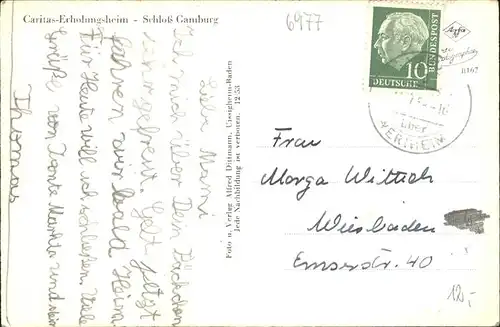 Caritas-Erholungsheim - Schloß Gamburg
6977
Liebe Mami
Ich mich über Dein Päckchen
sehr gefreut. Gelt jetzt
fahren wir bald Heim
Für Heute will ich schließen. Viele
Grüße von Tante Martha und
Thomas
Foto u. Verlag Alfred Dittmann, Uissigheim-Baden
Jede Nachbildung ist verboten. 12/53
10
DEUTSCHE
BUNDESPOST
Agfa
über
WERTHEIM
Frau
Marga Wittich
Wiesbaden
Emserstr. 40
12,-